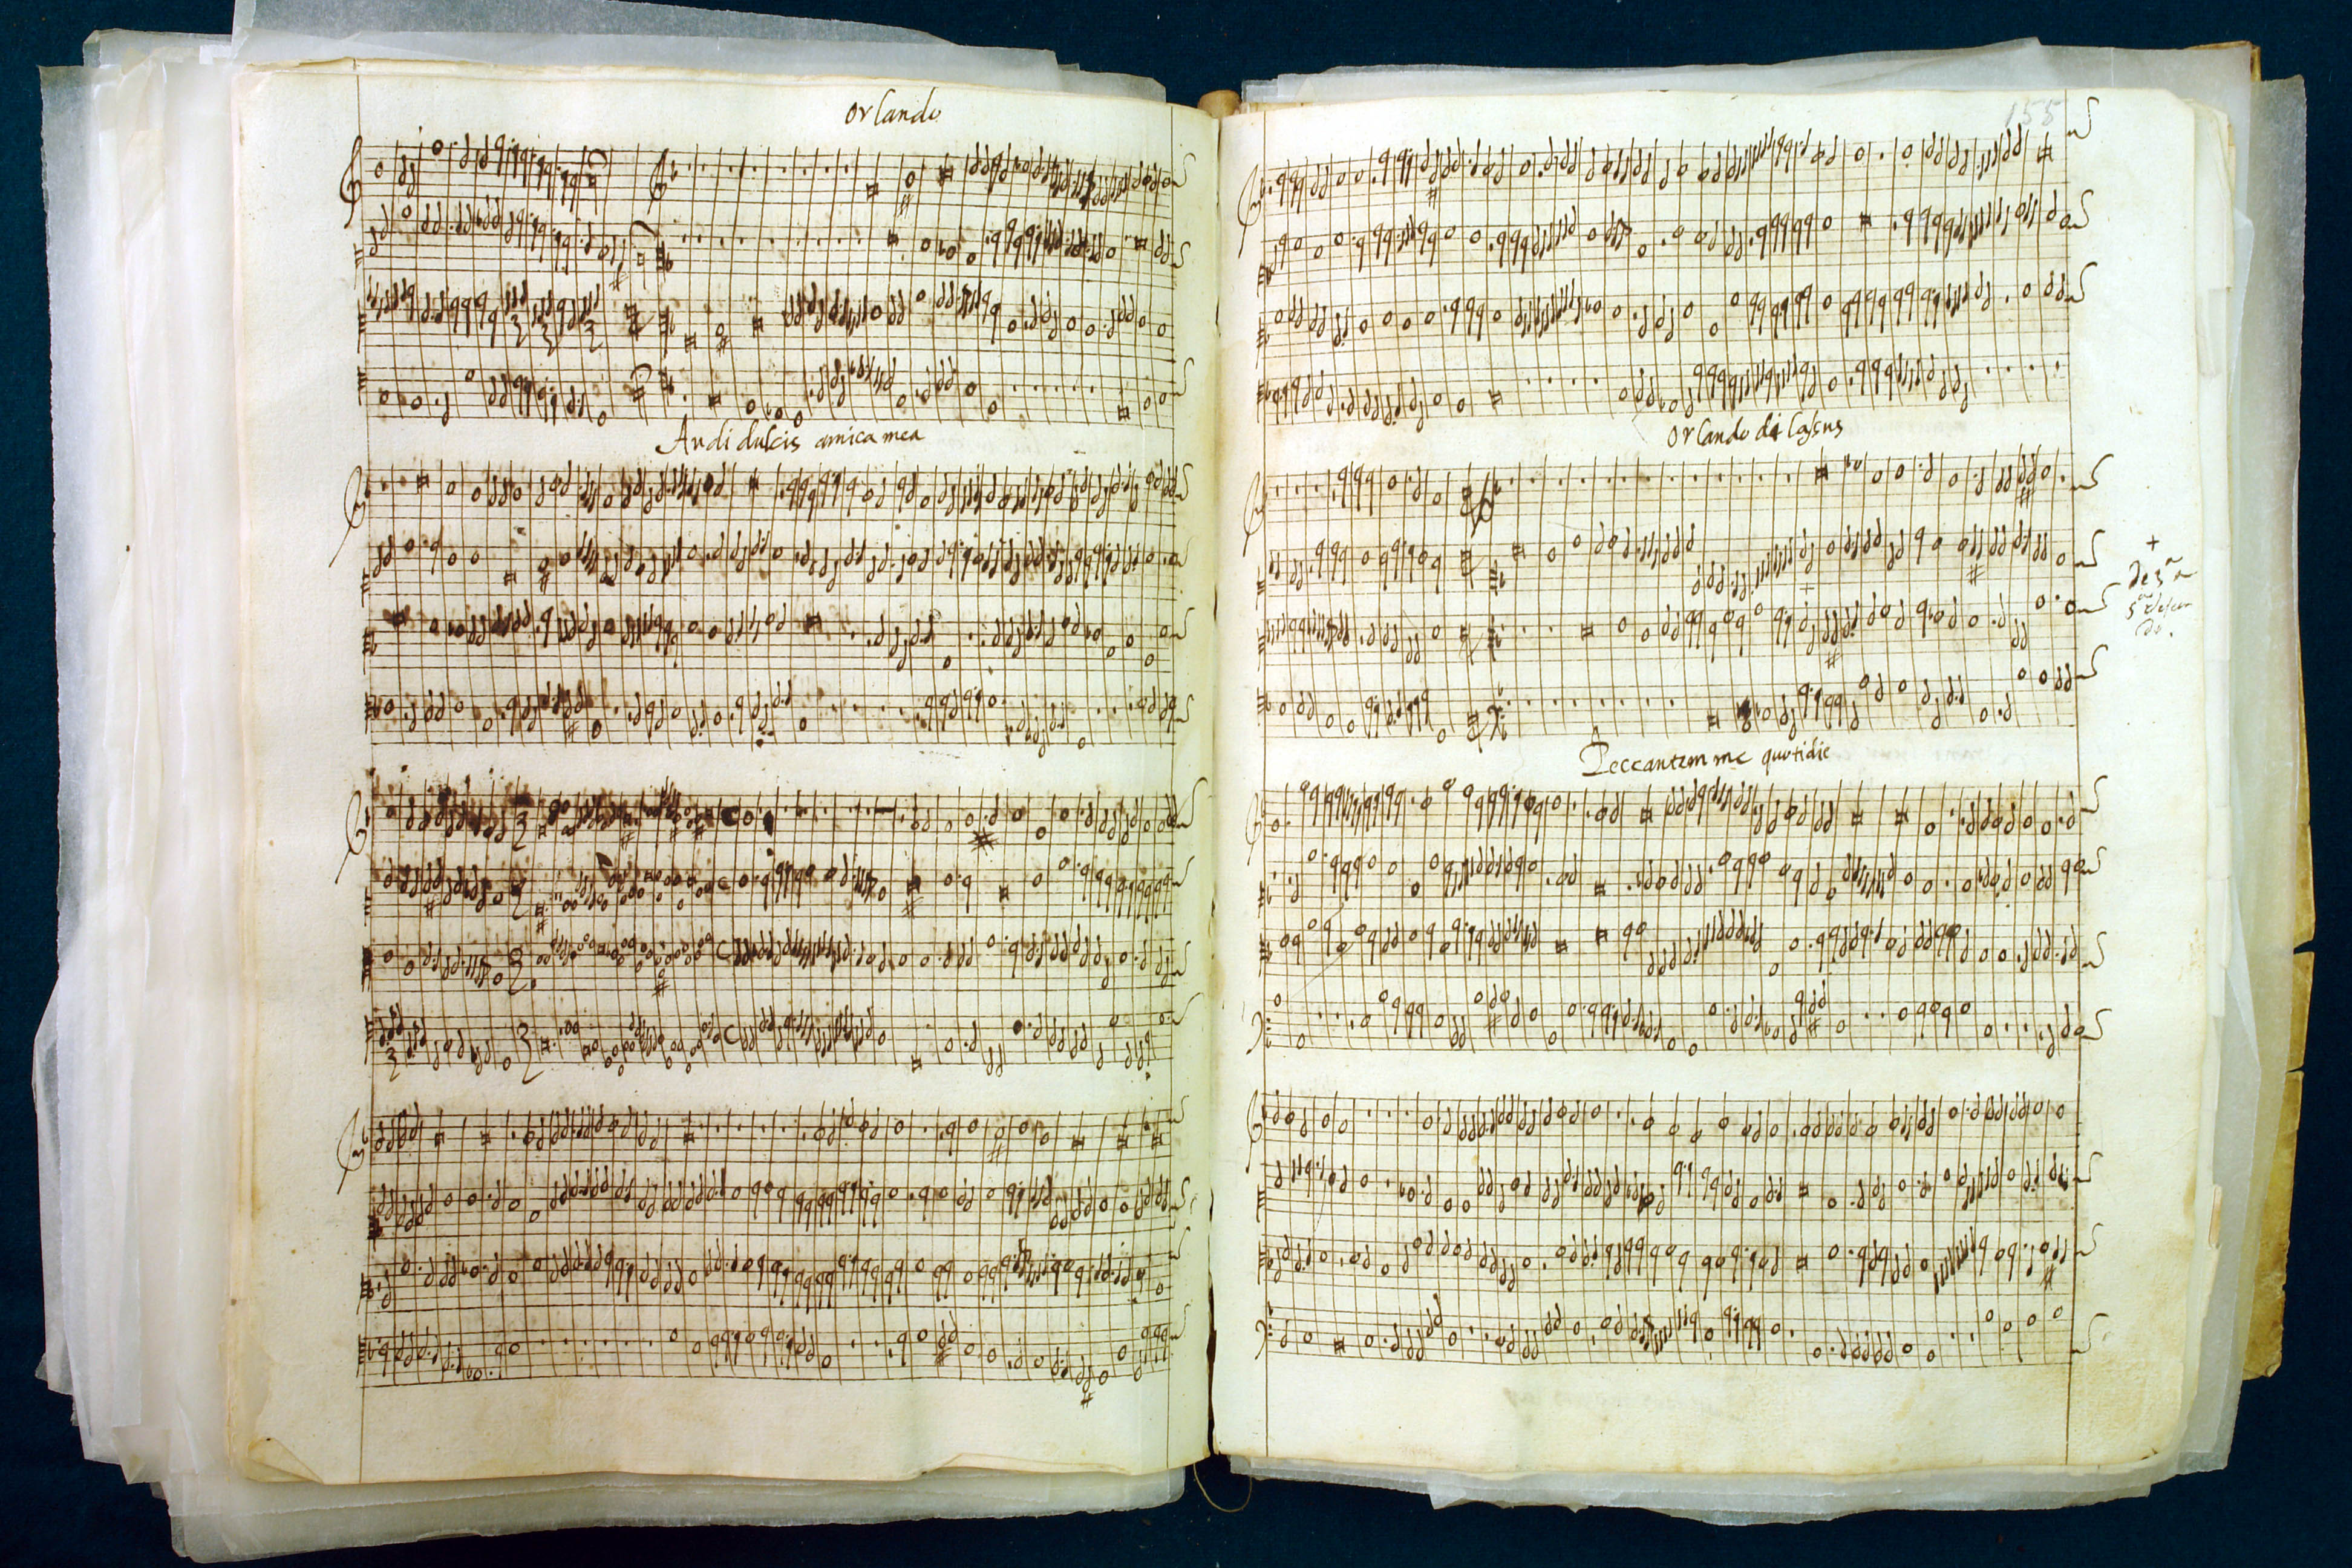 Orlando
Audi dulcis amica mea
155
Orlando di lassus
Peccantem me quotidie
+
de 3ª a
5ª